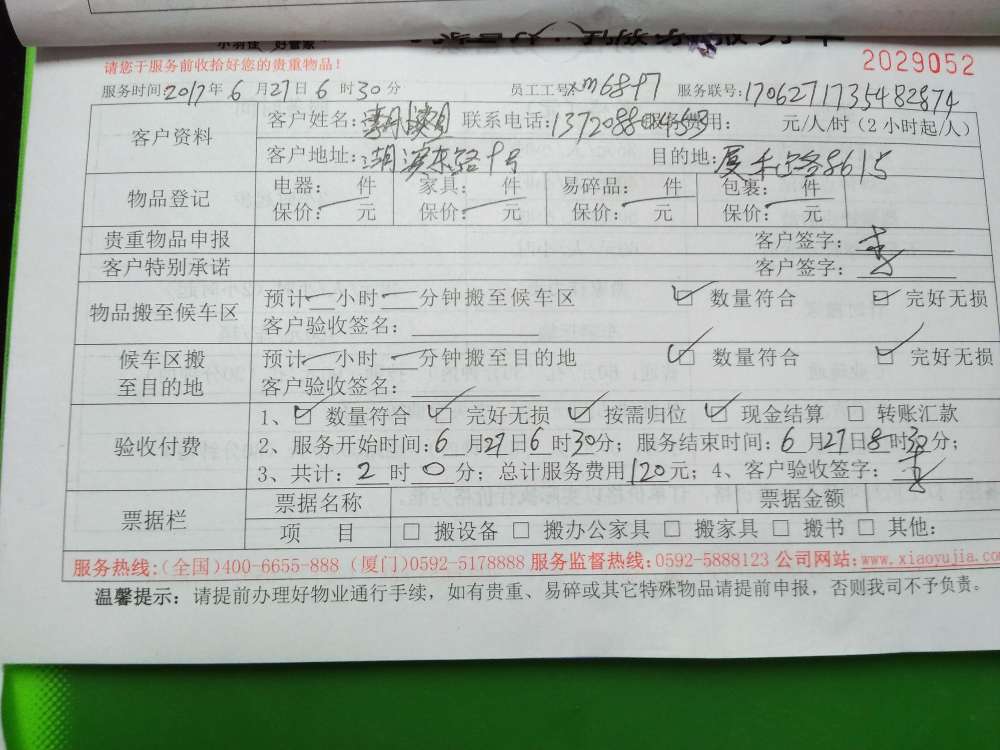 请您于服务前收拾好您的贵重物品！ 2029052
服务时间:2017年6月27日6时30分 员工工号:xm6897 服务联号:17062717354828​74
客户资料 客户姓名: 联系电话: 服务费用: 元/人/时（2小时起/人）
客户地址:湖滨东路十号 目的地:厦禾路8615
物品登记 电器: 件 家具: 件 易碎品: 件 包裹: 件
保价: 元 保价: 元 保价: 元 保价: 元
贵重物品申报 客户签字:李
客户特别承诺 客户签字:李
物品搬至候车区 预计一小时一分钟搬至候车区 ☑ 数量符合 ☑ 完好无损
客户验收签名:
候车区搬至目的地 预计一小时一分钟搬至目的地 ☑ 数量符合 ☑ 完好无损
客户验收签名:
验收付费 1、☑ 数量符合 ☑ 完好无损 ☑ 按需归位 ☑ 现金结算 □ 转账汇款
2、服务开始时间:6月27日6时30分；服务结束时间:6月27日8时30分；
3、共计:2时0分；总计服务费用120元；4、客户验收签字:李
票据栏 票据名称 票据金额
项 目 □ 搬设备 □ 搬办公家具 □ 搬家具 □ 搬书 □ 其他:
服务热线:(全国)400-6655-888 (厦门)0592-5178888 服务监督热线:0592-5888123 公司网站:www.xiaoyujia.com
温馨提示: 请提前办理好物业通行手续，如有贵重、易碎或其它特殊物品请提前申报，否则我司不予负责。